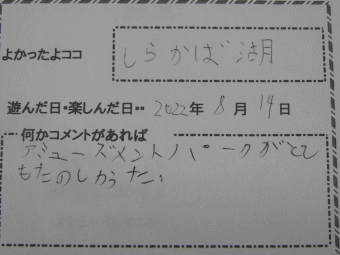 よかったよココ しらかば湖
遊んだ日・楽しんだ日・・ 2022年 8月 14日
何かコメントがあれば
アミューズメントパークがとて
もたのしかった！